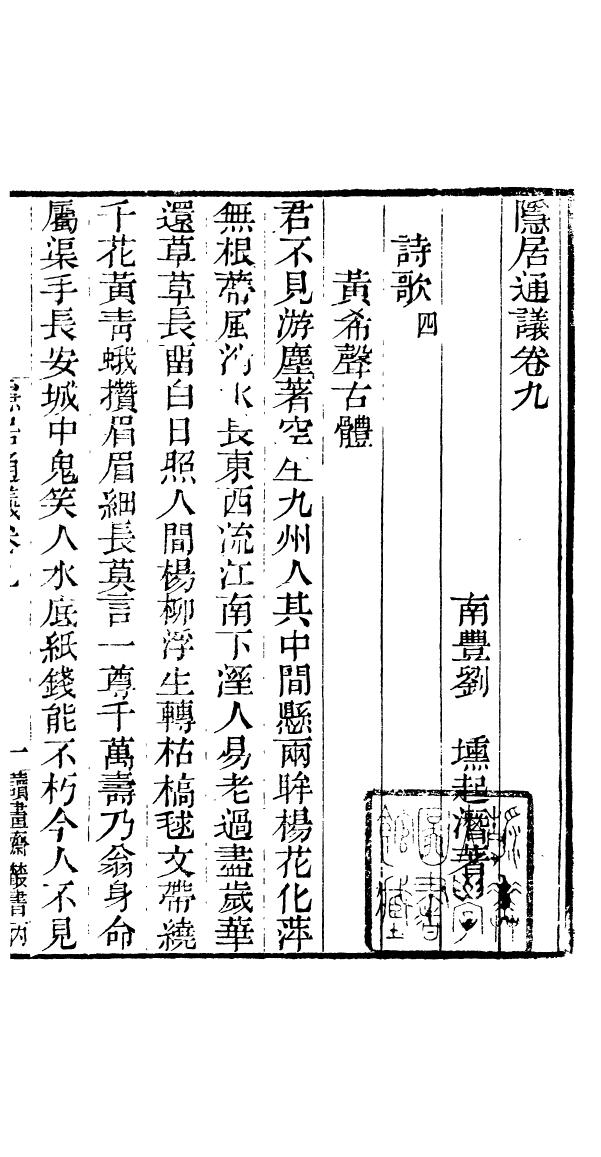 隱居通議卷九
南豐劉　壎起潛著
詩歌四
黃希聲古體
君不見游塵著空生九州人其中間懸兩眸楊花化萍
無根蔕風濤水長東西流江南下溼人易老過盡歲華
還草草長留白日照人間楊柳浮生轉枯槁毬文帶繞
千花黃靑蛾攢眉眉細長莫言一尊千萬壽乃翁身命
屬渠手長安城中鬼笑人水底紙錢能不朽今人不見
隱居通議卷九
一
讀畫齋叢書丙